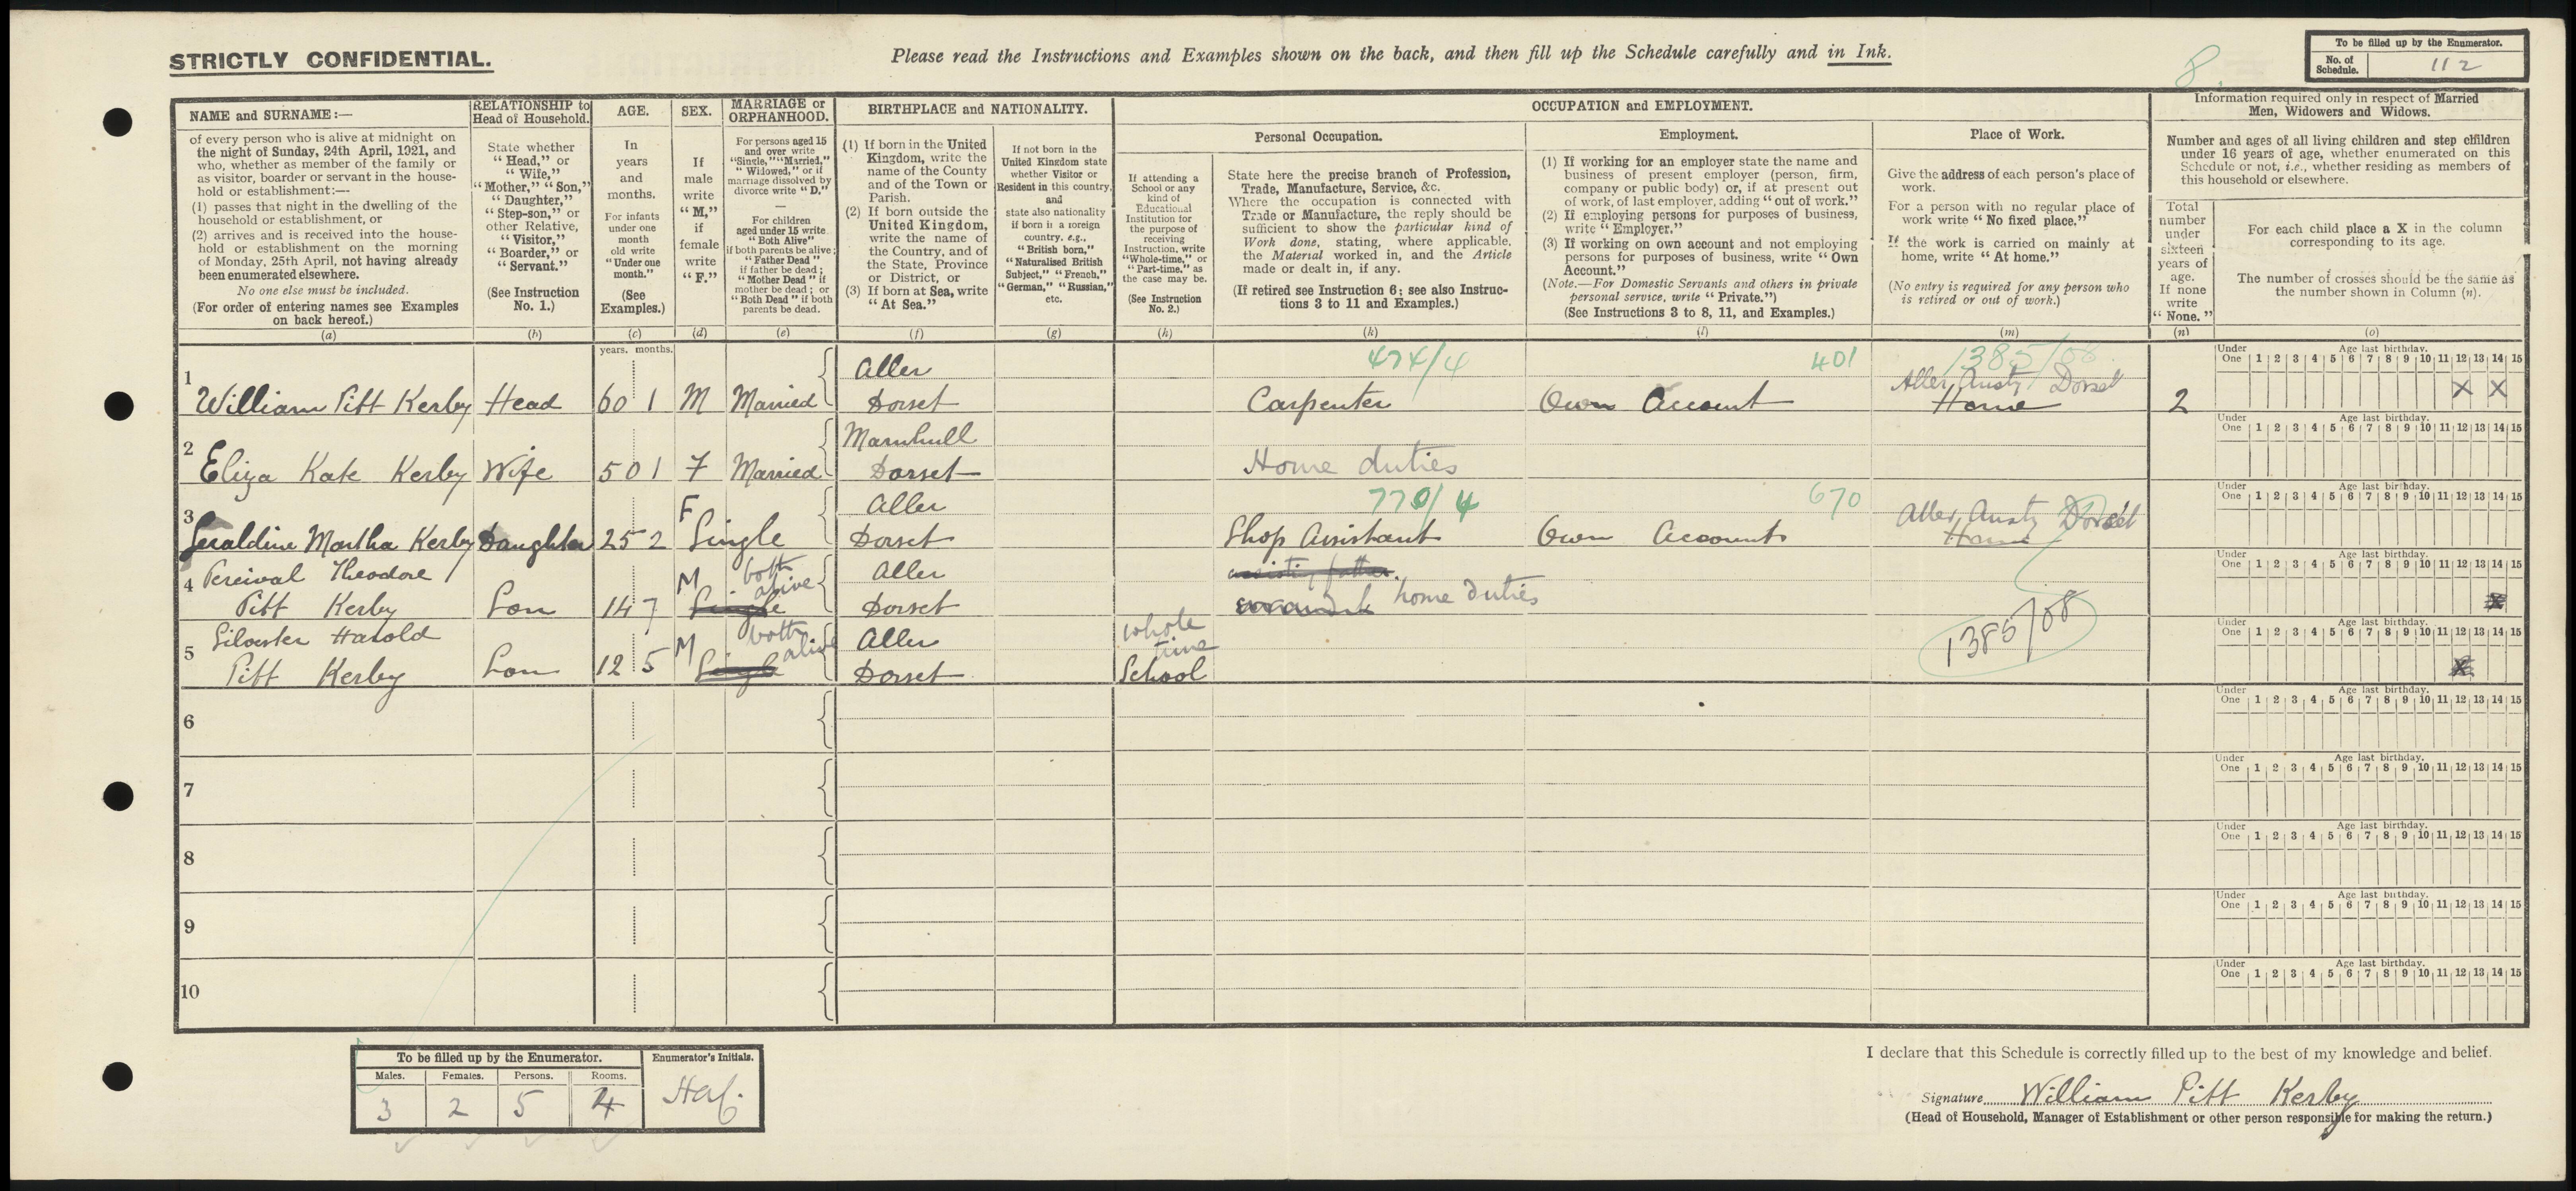 STRICTLY CONFIDENTIAL.
Please read the Instructions and Examples shown on the back, and then fill up the Schedule carefully and in Ink.
8.
To be filled up by the Enumerator.
No. of Schedule. 112
NAME and SURNAME:—
of every person who is alive at midnight on
the night of Sunday, 24th April, 1921, and
who, whether as member of the family or
as visitor, boarder or servant in the house-
hold or establishment:—
(1) passes that night in the dwelling of the
household or establishment, or
(2) arrives and is received into the house-
hold or establishment on the morning
of Monday, 25th April, not having already
been enumerated elsewhere.
No one else must be included.
(For order of entering names see Examples
on back hereof.)
(a)
RELATIONSHIP to
Head of Household.
State whether
"Head," or
"Wife,"
"Mother," "Son,"
"Daughter,"
"Step-son," or
other Relative,
"Visitor,"
"Boarder," or
"Servant."
(See Instruction
No. 1.)
(b)
AGE.
In
years
and
months.
For infants
under one
month
old write
"Under one
month."
(See
Examples.)
(c)
SEX.
If
male
write
"M,"
if
female
write
"F."
(d)
MARRIAGE or
ORPHANHOOD.
For persons aged 15
and over write
"Single," "Married,"
"Widowed," or if
marriage dissolved by
divorce write "D."
—
For children
aged under 15 write
"Both Alive"
if both parents be alive;
"Father Dead"
if father be dead;
"Mother Dead" if
mother be dead; or
"Both Dead" if both
parents be dead.
(e)
BIRTHPLACE and NATIONALITY.
(1) If born in the United
Kingdom, write the
name of the County
and of the Town or
Parish.
(2) If born outside the
United Kingdom,
write the name of
the Country, and of
the State, Province
or District, or
(3) If born at Sea, write
"At Sea."
(f)
If not born in the
United Kingdom state
whether Visitor or
Resident in this country,
and
state also nationality
if born in a foreign
country, e.g.,
"British born,"
"Naturalised British
Subject," "French,"
"German," "Russian,"
etc.
(g)
OCCUPATION and EMPLOYMENT.
If attending a
School or any
kind of
Educational
Institution for
the purpose of
receiving
Instruction, write
"Whole-time," or
"Part-time," as
the case may be.
(See Instruction
No. 2.)
(h)
Personal Occupation.
State here the precise branch of Profession,
Trade, Manufacture, Service, &c.
Where the occupation is connected with
Trade or Manufacture, the reply should be
sufficient to show the particular kind of
Work done, stating, where applicable,
the Material worked in, and the Article
made or dealt in, if any.
(If retired see Instruction 6; see also Instruc-
tions 3 to 11 and Examples.)
(k)
Employment.
(1) If working for an employer state the name and
business of present employer (person, firm,
company or public body) or, if at present out
of work, of last employer, adding "out of work."
(2) If employing persons for purposes of business,
write "Employer."
(3) If working on own account and not employing
persons for purposes of business, write "Own
Account."
(Note.—For Domestic Servants and others in private
personal service, write "Private.")
(See Instructions 3 to 8, 11, and Examples.)
(l)
Place of Work.
Give the address of each person's place of
work.
For a person with no regular place of
work write "No fixed place."
If the work is carried on mainly at
home, write "At home."
(No entry is required for any person who
is retired or out of work.)
(m)
Information required only in respect of Married
Men, Widowers and Widows.
Number and ages of all living children and step children
under 16 years of age, whether enumerated on this
Schedule or not, i.e., whether residing as members of
this household or elsewhere.
Total
number
under
sixteen
years of
age.
If none
write
"None."
(n)
For each child place a X in the column
corresponding to its age.
The number of crosses should be the same as
the number shown in Column (n).
(o)
years. months.
474/4 401 1385/08
1 William Pitt Kerby Head 60 1 M Married Aller Dorset Carpenter Own Account Aller, Ansty, Dorset Home 2
Under One 1 2 3 4 5 6 7 8 9 10 11 12 13 14 15 Age last birthday. X X
2 Eliza Kate Kerby Wife 50 1 F Married Marnhull Dorset Home duties
Under One 1 2 3 4 5 6 7 8 9 10 11 12 13 14 15 Age last birthday.
770/4 670
3 Geraldine Martha Kerby Daughter 25 2 F Single Aller Dorset Shop Assistant Own Account Aller, Ansty Dorset Home
Under One 1 2 3 4 5 6 7 8 9 10 11 12 13 14 15 Age last birthday.
4 Percival Theodore Pitt Kerby Son 14 7 M Single both alive Aller Dorset assisting father home duties
Under One 1 2 3 4 5 6 7 8 9 10 11 12 13 14 15 Age last birthday. X
1385/08
5 Silvester Harold Pitt Kerby Son 12 5 M Single both alive Aller Dorset whole time School
Under One 1 2 3 4 5 6 7 8 9 10 11 12 13 14 15 Age last birthday. X
6 Under One 1 2 3 4 5 6 7 8 9 10 11 12 13 14 15 Age last birthday.
7 Under One 1 2 3 4 5 6 7 8 9 10 11 12 13 14 15 Age last birthday.
8 Under One 1 2 3 4 5 6 7 8 9 10 11 12 13 14 15 Age last birthday.
9 Under One 1 2 3 4 5 6 7 8 9 10 11 12 13 14 15 Age last birthday.
10 Under One 1 2 3 4 5 6 7 8 9 10 11 12 13 14 15 Age last birthday.
To be filled up by the Enumerator.
Males. Females. Persons. Rooms.
3 2 5 4
Enumerator's Initials.
I declare that this Schedule is correctly filled up to the best of my knowledge and belief.
Signature William Pitt Kerby
(Head of Household, Manager of Establishment or other person responsible for making the return.)